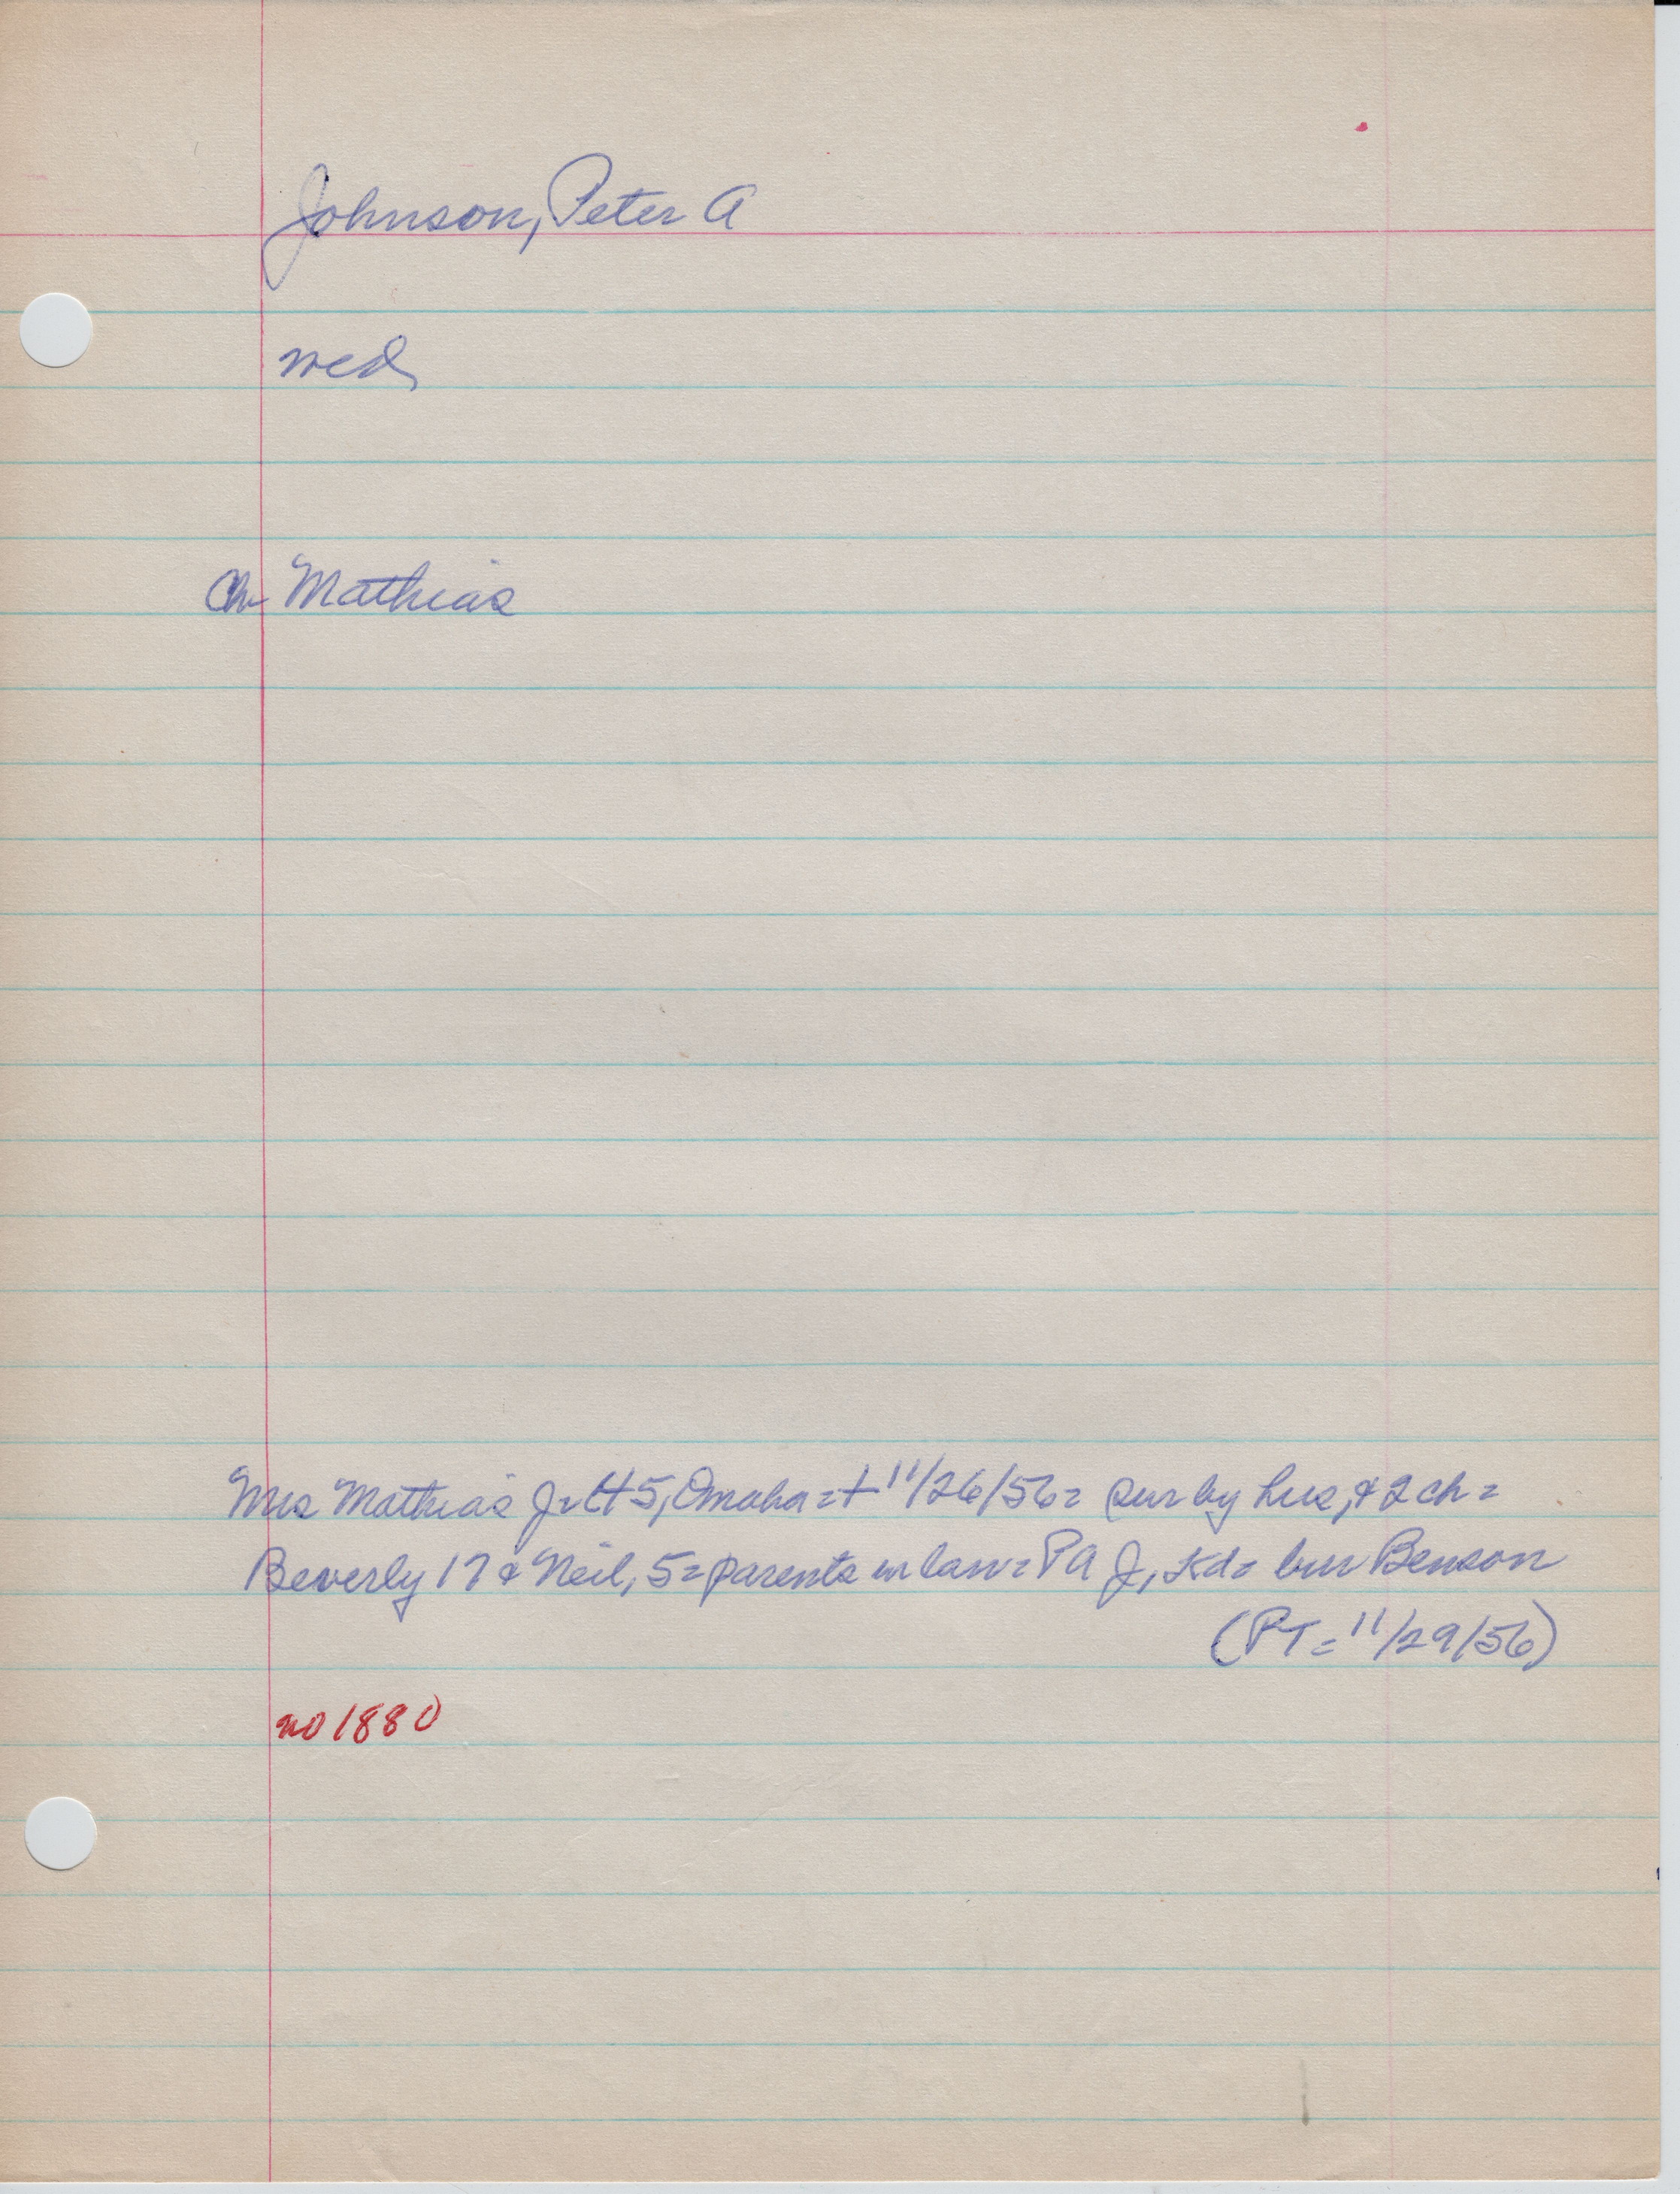 Johnson, Peter A
wed
Ch Mathias
Mrs Mathias J = 45, Omaha = + 11/26/56 = sur by hus, & 2 ch =
Beverly 17 & Neil, 5 = parents in law = PA J, Kd = bur Benson
(PT = 11/29/56)
no 1880